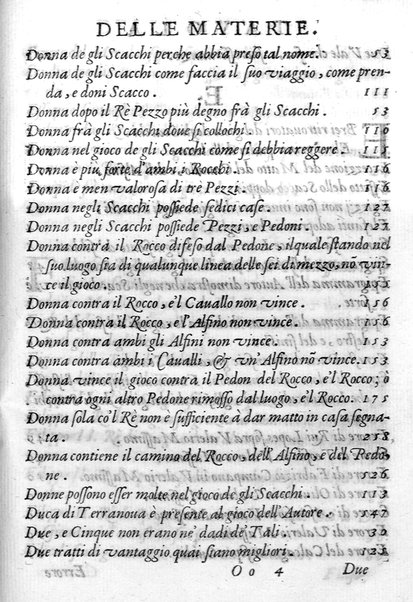 DELLE MATERIE.
Donna de gli Scacchi perche abbia preso tal nome. 53
Donna de gli Scacchi come faccia il suo viaggio, come pren-
da, e doni Scacco. 111
Donna dopo il Rè Pezzo più degno frà gli Scacchi. 53
Donna frà gli Scacchi doue si collochi. 110
Donna nel gioco de gli Scacchi come si debbia reggere.
Donna è più forte d'ambi i Rocchi. 116
Donna è men valorosa di trè Pezzi. 116
Donna negli Scacchi possiede sedici case. 127
Donna negli Scacchi possiede Pezzi, e Pedoni. 127
Donna contra il Rocco difeso dal Pedone, ilquale stando nel
suo luogo sia di qualunque linea delle sei di mezzo, nõ vin-
ce il gioco.
Donna contra il Rocco, e'l Cauallo non vince. 156
Donna contra il Rocco, e l'Alfino non vince. 156
Donna contra ambi gli Alfini non vince. 153
Donna contra ambi i Caualli, & vn'Alfino nõ vince. 153
Donna vince il gioco contra il Pedon del Rocco, e'l Rocco; ò
contra ogni altro Pedone rimosso dal luogo, e'l Rocco. 175
Donna sola co'l Rè non è sufficiente à dar matto in casa segna-
ta. 218
Donna contiene il camino del Rocco, dell'Alfino, e del Pedo-
ne. 126
Donne possono esser molte nel gioco de gli Scacchi. 113
Duca di Terranoua è presente al gioco dell'Autore. 247
Due, e Cinque non erano ne' dadi de' Tali. 31
Due tratti di vantaggio quai siano migliori. 123
Oo 4 Due